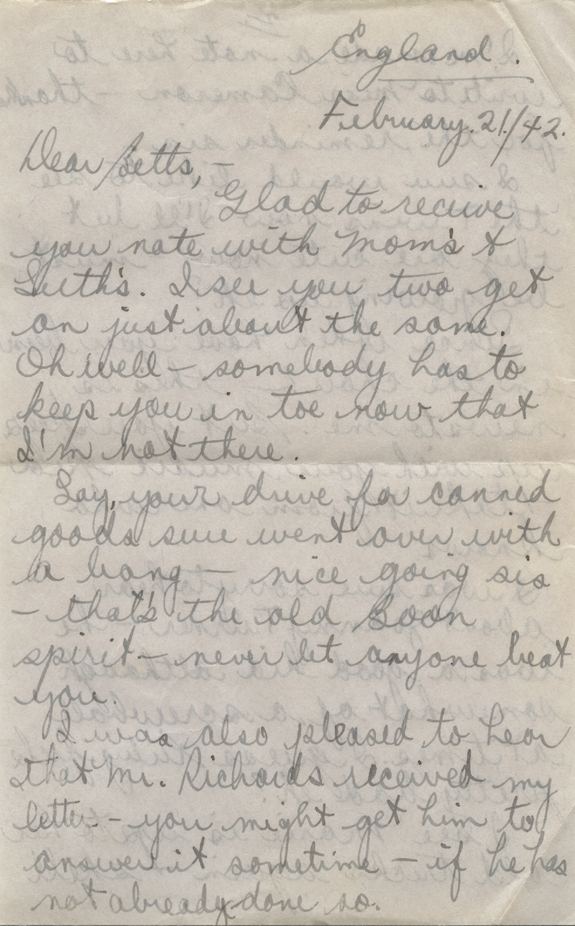 England.
February.21/42.
Dear Betts,-
Glad to recive
you note with Mom's &
Ruth's. I see you two get
on just about the same.
Oh well - somebody has to
keep you in toe now that
I'm not there.
Say, your drive for canned
goods sure went over with
a bang - nice going sis
- that's the old Boon
spirit - never let anyone beat
you.
I was also pleased to hear
that Mr. Richards received my
letter - you might get him to
answer it sometime - if he has
not already done so.